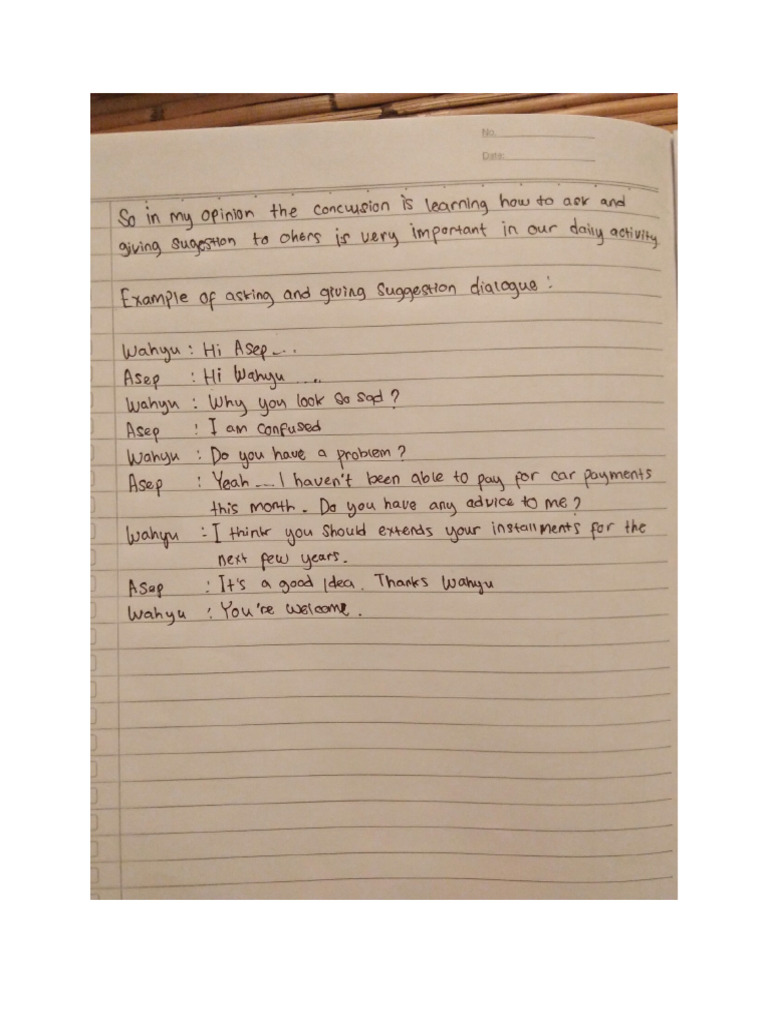 No.
Date:
So in my opinion the concuusion is learning how to ask and
giving sugestion to ohers is very important in our daily activity
Example of asking and giving suggestion dialogue :
Wahyu : Hi Asep ....
Asep : Hi Wahyu .....
Wahyu : Why you look so sad ?
Asep : I am confused
Wahyu : Do you have a problem ?
Asep : Yeah ... I haven't been able to pay for car payments
this month. Do you have any advice to me ?
Wahyu : I think you should extends your installments for the
next few years.
Asep : It's a good idea. Thanks Wahyu
Wahyu : You're welcome.